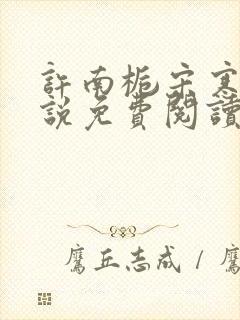 許南梔宋寒
説免費閱讀
鷹丘志成 / 鷹